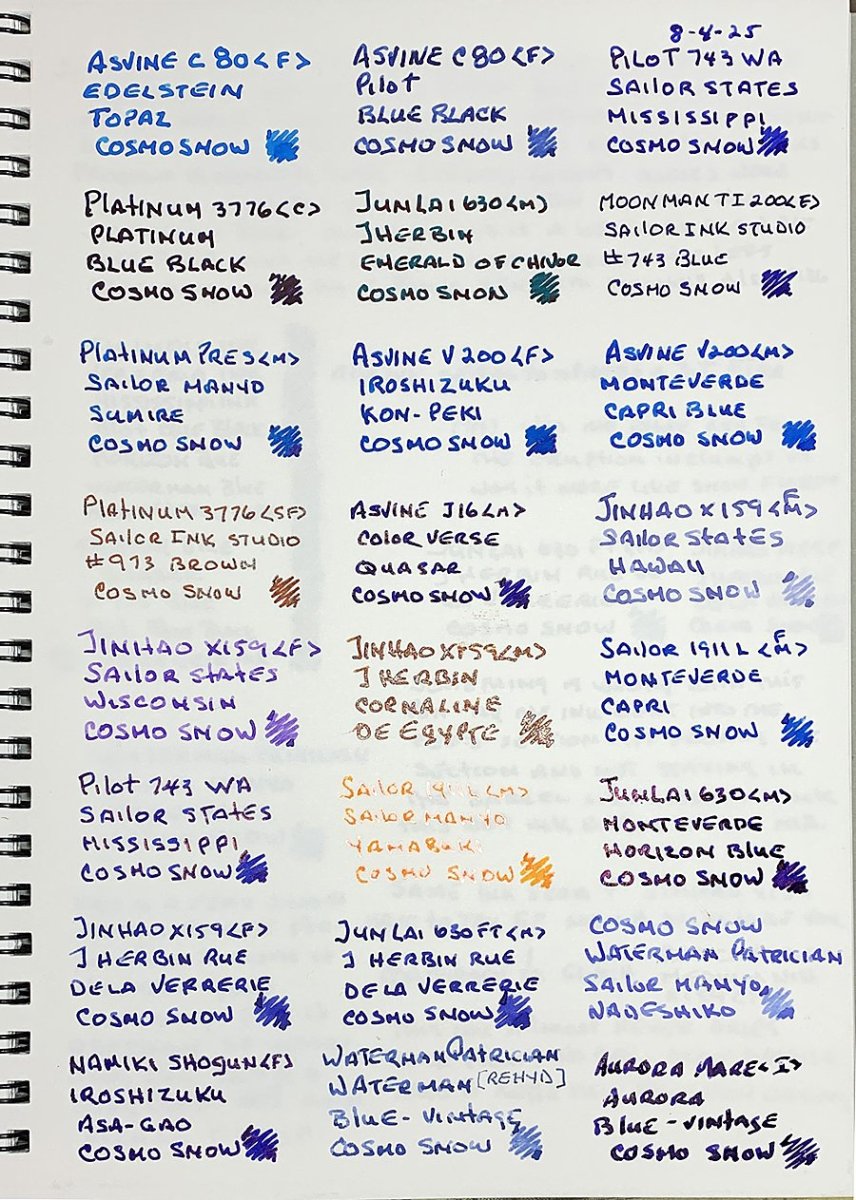 8-4-25
ASVINE C 80<F>
EDELSTEIN
TOPAZ
COSMO SNOW
ASVINE C 80<F>
PILOT
BLUE BLACK
COSMO SNOW
PILOT 743 WA
SAILOR STATES
MISSISSIPPI
COSMO SNOW
PLATINUM 3776<C>
PLATINUM
BLUE BLACK
COSMO SNOW
JUNLAI 630<M>
JHERBIN
EMERALD OF CHIVOR
COSMO SNOW
MOONMAN TI 200<F>
SAILOR INK STUDIO
#743 BLUE
COSMO SNOW
PLATINUM PRES<M>
SAILOR MANYO
SUMIRE
COSMO SNOW
ASVINE V200<F>
IROSHIZUKU
KON-PEKI
COSMO SNOW
ASVINE V200<M>
MONTEVERDE
CAPRI BLUE
COSMO SNOW
PLATINUM 3776<SF>
SAILOR INK STUDIO
#973 BROWN
COSMO SNOW
ASVINE J16<M>
COLOR VERSE
QUASAR
COSMO SNOW
JINHAO X159<FM>
SAILOR STATES
HAWAII
COSMO SNOW
JINHAO X159<F>
SAILOR STATES
WISCONSIN
COSMO SNOW
JINHAO X159<M>
J HERBIN
CORNALINE
DE EGYPTE
SAILOR 1911 L <FM>
MONTEVERDE
CAPRI
COSMO SNOW
PILOT 743 WA
SAILOR STATES
MISSISSIPPI
COSMO SNOW
SAILOR 1911L<M>
SAILOR MANYO
YAMABUKI
COSMO SNOW
JUNLAI 630<M>
MONTEVERDE
HORIZON BLUE
COSMO SNOW
JINHAO X159<F>
J HERBIN RUE
DELA VERRERIE
COSMO SNOW
JUNLAI 630FT<M>
J HERBIN RUE
DELA VERRERIE
COSMO SNOW
COSMO SNOW
WATERMAN PATRICIAN
SAILOR MANYO
NADESHIKO
NAMIKI SHOGUN<F>
IROSHIZUKU
ASA-GAO
COSMO SNOW
WATERMAN PATRICIAN
WATERMAN [REHYD]
BLUE-VINTAGE
COSMO SNOW
AURORA MARE<I>
AURORA
BLUE-VINTAGE
COSMO SNOW